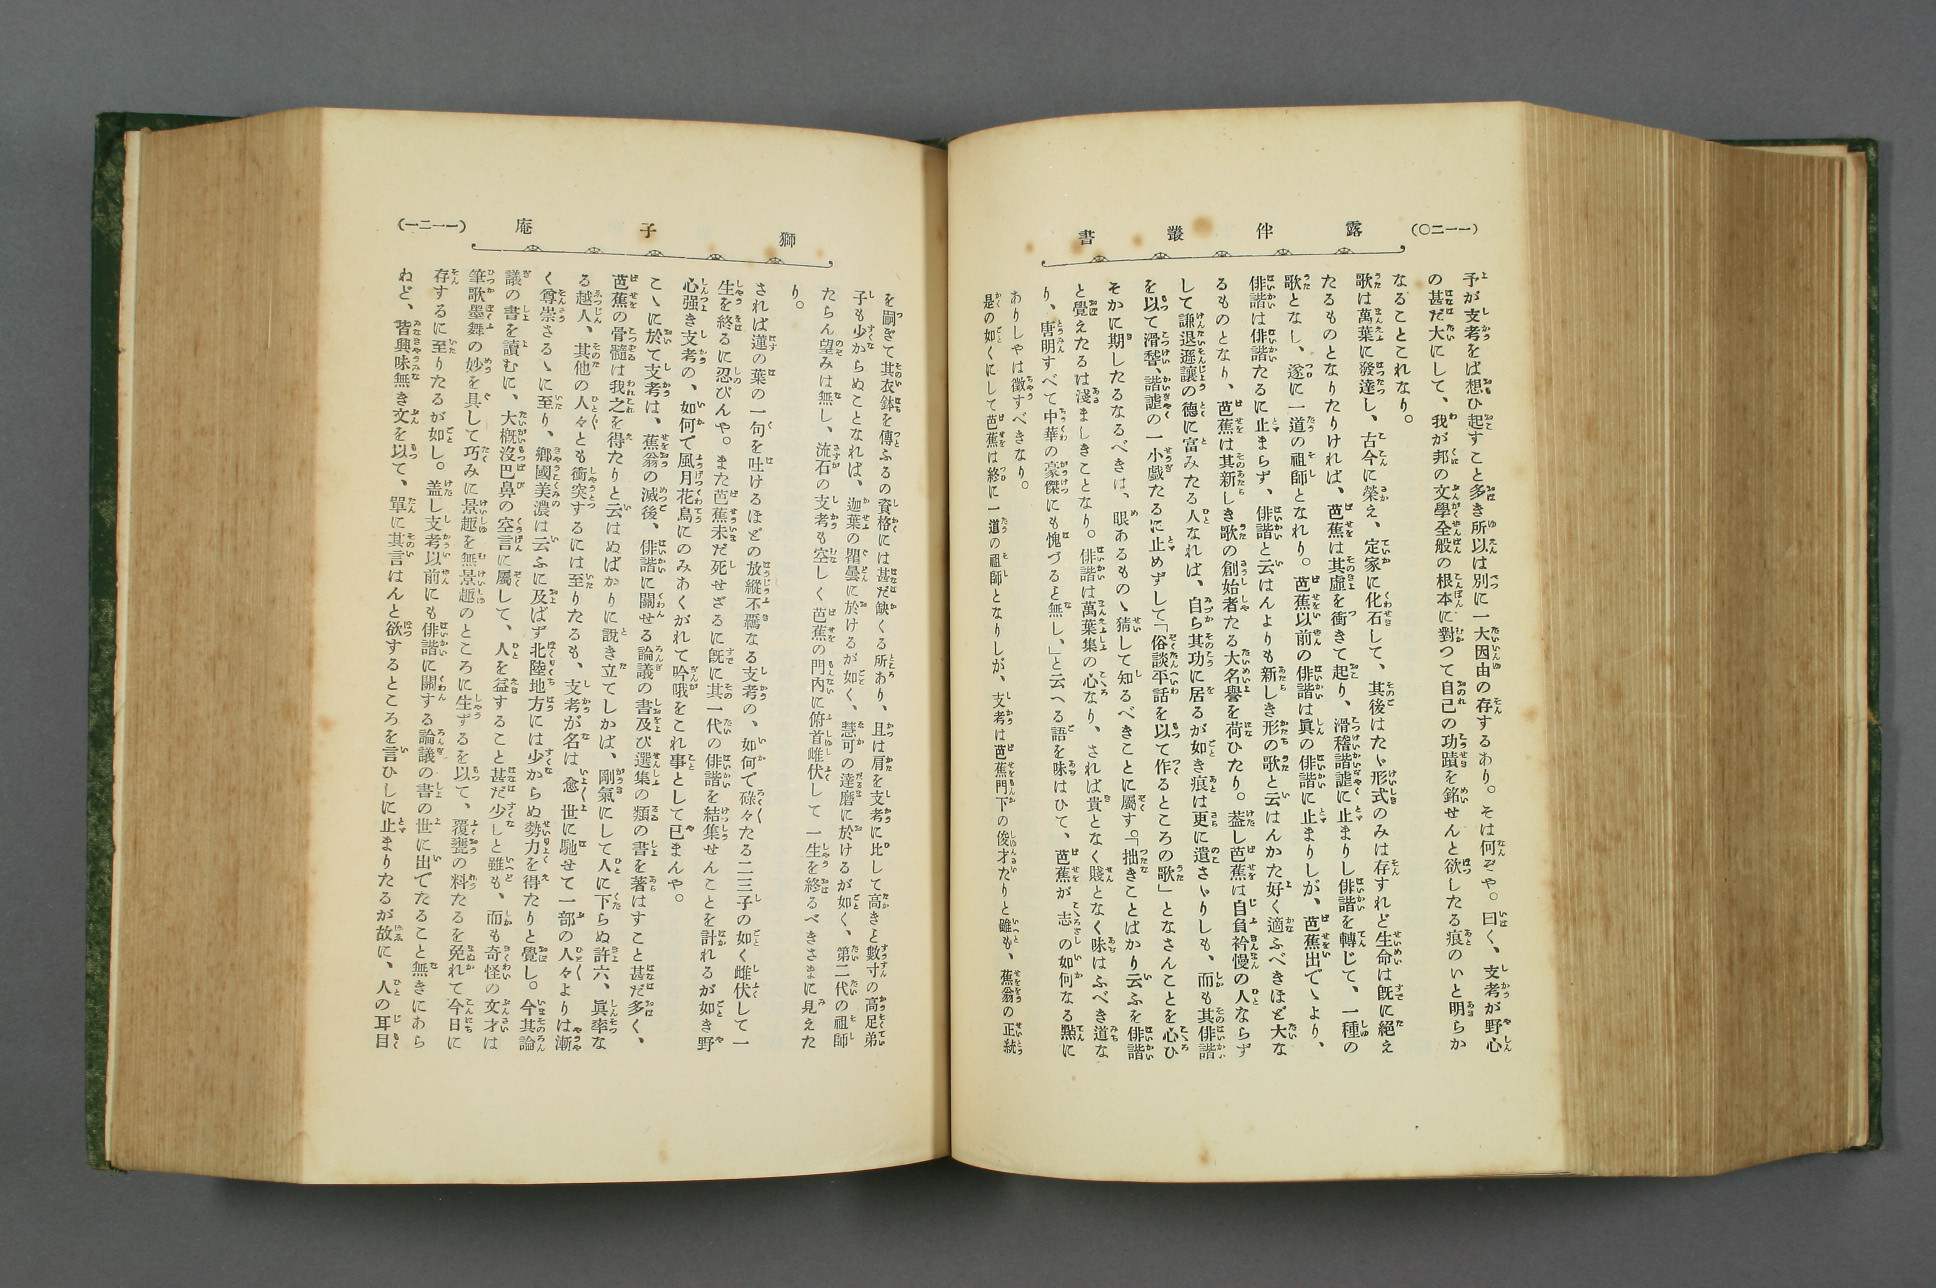 (一一二〇)
露伴叢書
予が支考をば想ひ起すこと多き所以は別に一大因由の存するあり。そは何ぞや。曰く、支考が野心
の甚だ大にして、我が邦の文學全般の根本に對つて自己の功蹟を銘せんと欲したる痕のいと明らか
なることこれなり。
歌は萬葉に發達し、古今に榮え、定家に化石して、其後はたゞ形式のみは存すれど生命は旣に絕え
たるものとなりたりければ、芭蕉は其虛を衝きて起り、滑稽諧謔に止まりし俳諧を轉じて、一種の
歌となし、遂に一道の祖師となれり。芭蕉以前の俳諧は眞の俳諧に止まりしが、芭蕉出でゝより、
俳諧は俳諧たるに止まらず、俳諧と云はんよりも新しき形の歌と云はんかた好く適ふべきほど大な
るものとなり、芭蕉は其新しき歌の創始者たる大名譽を荷ひたり。蓋し芭蕉は自負衿慢の人ならず
して謙退遜讓の德に富みたる人なれば、自ら其功に居るが如き痕は更に遺さゞりしも、而も其俳諧
を以て滑稽、諧謔の一小戲たるに止めずして「俗談平話を以て作るところの歌」となさんことを心ひ
そかに期したるなるべきは、眼あるものゝ猜して知るべきことに屬す。「拙きことばかり云ふを俳諧
と覺えたるは淺ましきことなり。俳諧は萬葉集の心なり、されば貴となく賤となく味はふべき道な
り、唐明すべて中華の豪傑にも愧づると無し、」と云へる語を味はひて、芭蕉が志の如何なる點に
ありしやは徵すべきなり。
是の如くにして芭蕉は終に一道の祖師となりしが、支考は芭蕉門下の俊才たりと雖も、蕉翁の正統
獅子庵
(一一二一)
を嗣ぎて其衣鉢を傳ふるの資格には甚だ缺くる所あり、且は肩を支考に比して高きと數寸の高足弟
子も少からぬことなれば、迦葉の瞿曇に於けるが如く、慧可の達磨に於けるが如く、第二代の祖師
たらん望みは無し、流石の支考も空しく芭蕉の門內に俯首雌伏して一生を終るべきさまに見えた
り。
されば蓮の葉の一句を吐けるほどの放縱不羈なる支考の、如何で碌々たる二三子の如く雌伏して一
生を終るに忍びんや。また芭蕉未だ死せざるに旣に其一代の俳諧を結集せんことを計れるが如き野
心强き支考の、如何で風月花鳥にのみあくがれて吟哦をこれ事として已まんや。
こゝに於て支考は、蕉翁の滅後、俳諧に關せる論議の書及び選集の類の書を著はすこと甚だ多く、
芭蕉の骨髓は我之を得たりと云はぬばかりに說き立てしかば、剛氣にして人に下らぬ許六、眞率な
る越人、其他の人々とも衝突するには至りたるも、支考が名は愈世に馳せて一部の人々よりは漸
く尊崇さるゝに至り、鄕國美濃は云ふに及ばず北陸地方には少からぬ勢力を得たりと覺し。今其論
議の書を讀むに、大槪沒巴鼻の空言に屬して、人を益すること甚だ少しと雖も、而も奇怪の文才は
筆歌墨舞の妙を具して巧みに景趣を無景趣のところに生ずるを以て、覆甕の料たるを免れて今日に
存するに至りたるが如し。蓋し支考以前にも俳諧に關する論議の書の世に出でたること無きにあら
ねど、皆興味無き文を以て、單に其言はんと欲するところを言ひしに止まりたるが故に、人の耳目